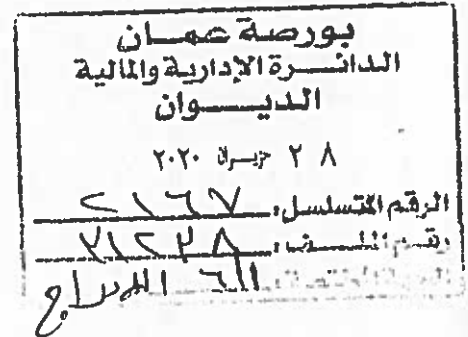 بورصة عمان
الدائرة الإدارية والمالية
الديوان
٢٨ حزيران ٢٠٢٠
الرقم المتسلسل: ٢١٦٧
رقم الملف:
الجهة المختصة: